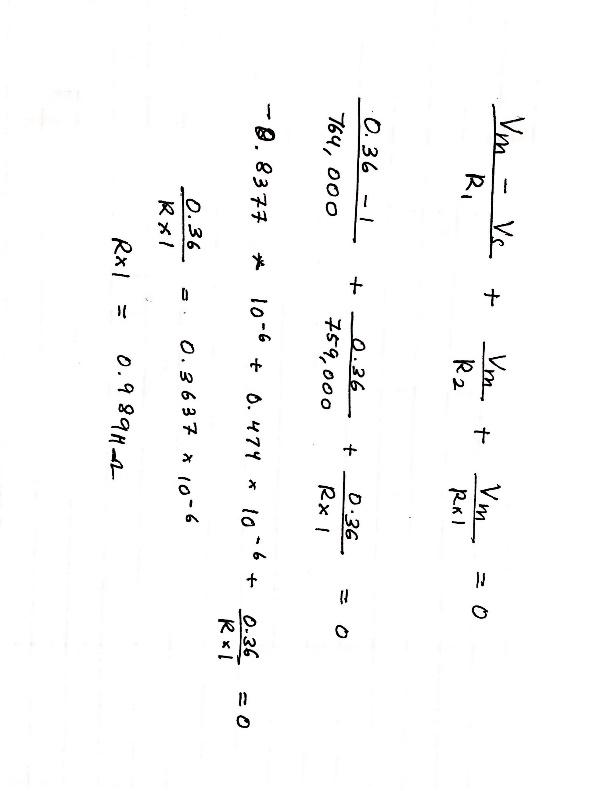 (Vm - Vs)/R1 + Vm/R2 + Vm/Rx1 = 0
(0.36 - 1)/764,000 + 0.36/759,000 + 0.36/Rx1 = 0
-0.8377 * 10^-6 + 0.474 * 10^-6 + 0.36/Rx1 = 0
0.36/Rx1 = 0.3637 x 10^-6
Rx1 = 0.989MΩ